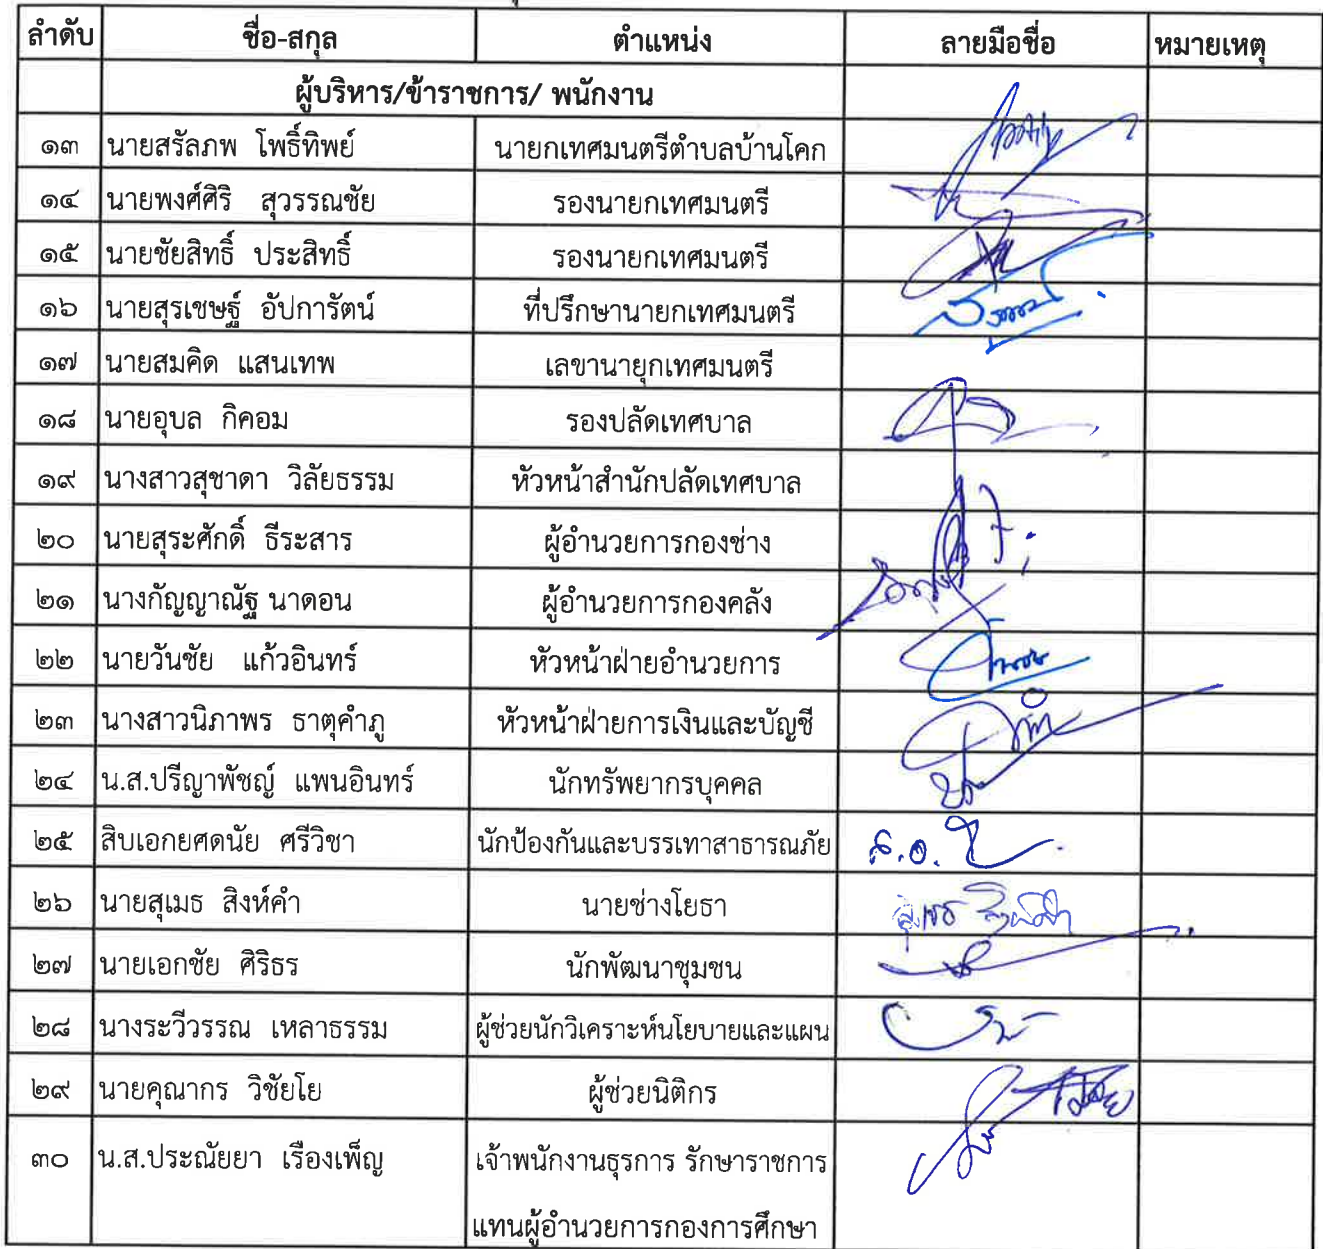 ลำดับ ชื่อ-สกุล ตำแหน่ง ลายมือชื่อ หมายเหตุ
ผู้บริหาร/ข้าราชการ/ พนักงาน
๑๓ นายสรัลภพ โพธิ์ทิพย์ นายกเทศมนตรีตำบลบ้านโคก
๑๔ นายพงศ์ศิริ สุวรรณชัย รองนายกเทศมนตรี
๑๕ นายชัยสิทธิ์ ประสิทธิ์ รองนายกเทศมนตรี
๑๖ นายสุรเชษฐ์ อัปการัตน์ ที่ปรึกษานายกเทศมนตรี
๑๗ นายสมคิด แสนเทพ เลขานายกเทศมนตรี
๑๘ นายอุบล กิคอม รองปลัดเทศบาล
๑๙ นางสาวสุชาดา วิลัยธรรม หัวหน้าสำนักปลัดเทศบาล
๒๐ นายสุระศักดิ์ ธีระสาร ผู้อำนวยการกองช่าง
๒๑ นางกัญญาณัฐ นาดอน ผู้อำนวยการกองคลัง
๒๒ นายวันชัย แก้วอินทร์ หัวหน้าฝ่ายอำนวยการ
๒๓ นางสาวนิภาพร ธาตุคำภู หัวหน้าฝ่ายการเงินและบัญชี
๒๔ น.ส.ปรีญาพัชญ์ แพนอินทร์ นักทรัพยากรบุคคล
๒๕ สิบเอกยศดนัย ศรีวิชา นักป้องกันและบรรเทาสาธารณภัย ส.อ.
๒๖ นายสุเมธ สิงห์คำ นายช่างโยธา
๒๗ นายเอกชัย ศิริธร นักพัฒนาชุมชน
๒๘ นางระวีวรรณ เหลาธรรม ผู้ช่วยนักวิเคราะห์นโยบายและแผน
๒๙ นายคุณากร วิชัยโย ผู้ช่วยนิติกร
๓๐ น.ส.ประณัยยา เรืองเพ็ญ เจ้าพนักงานธุรการ รักษาราชการ
แทนผู้อำนวยการกองการศึกษา